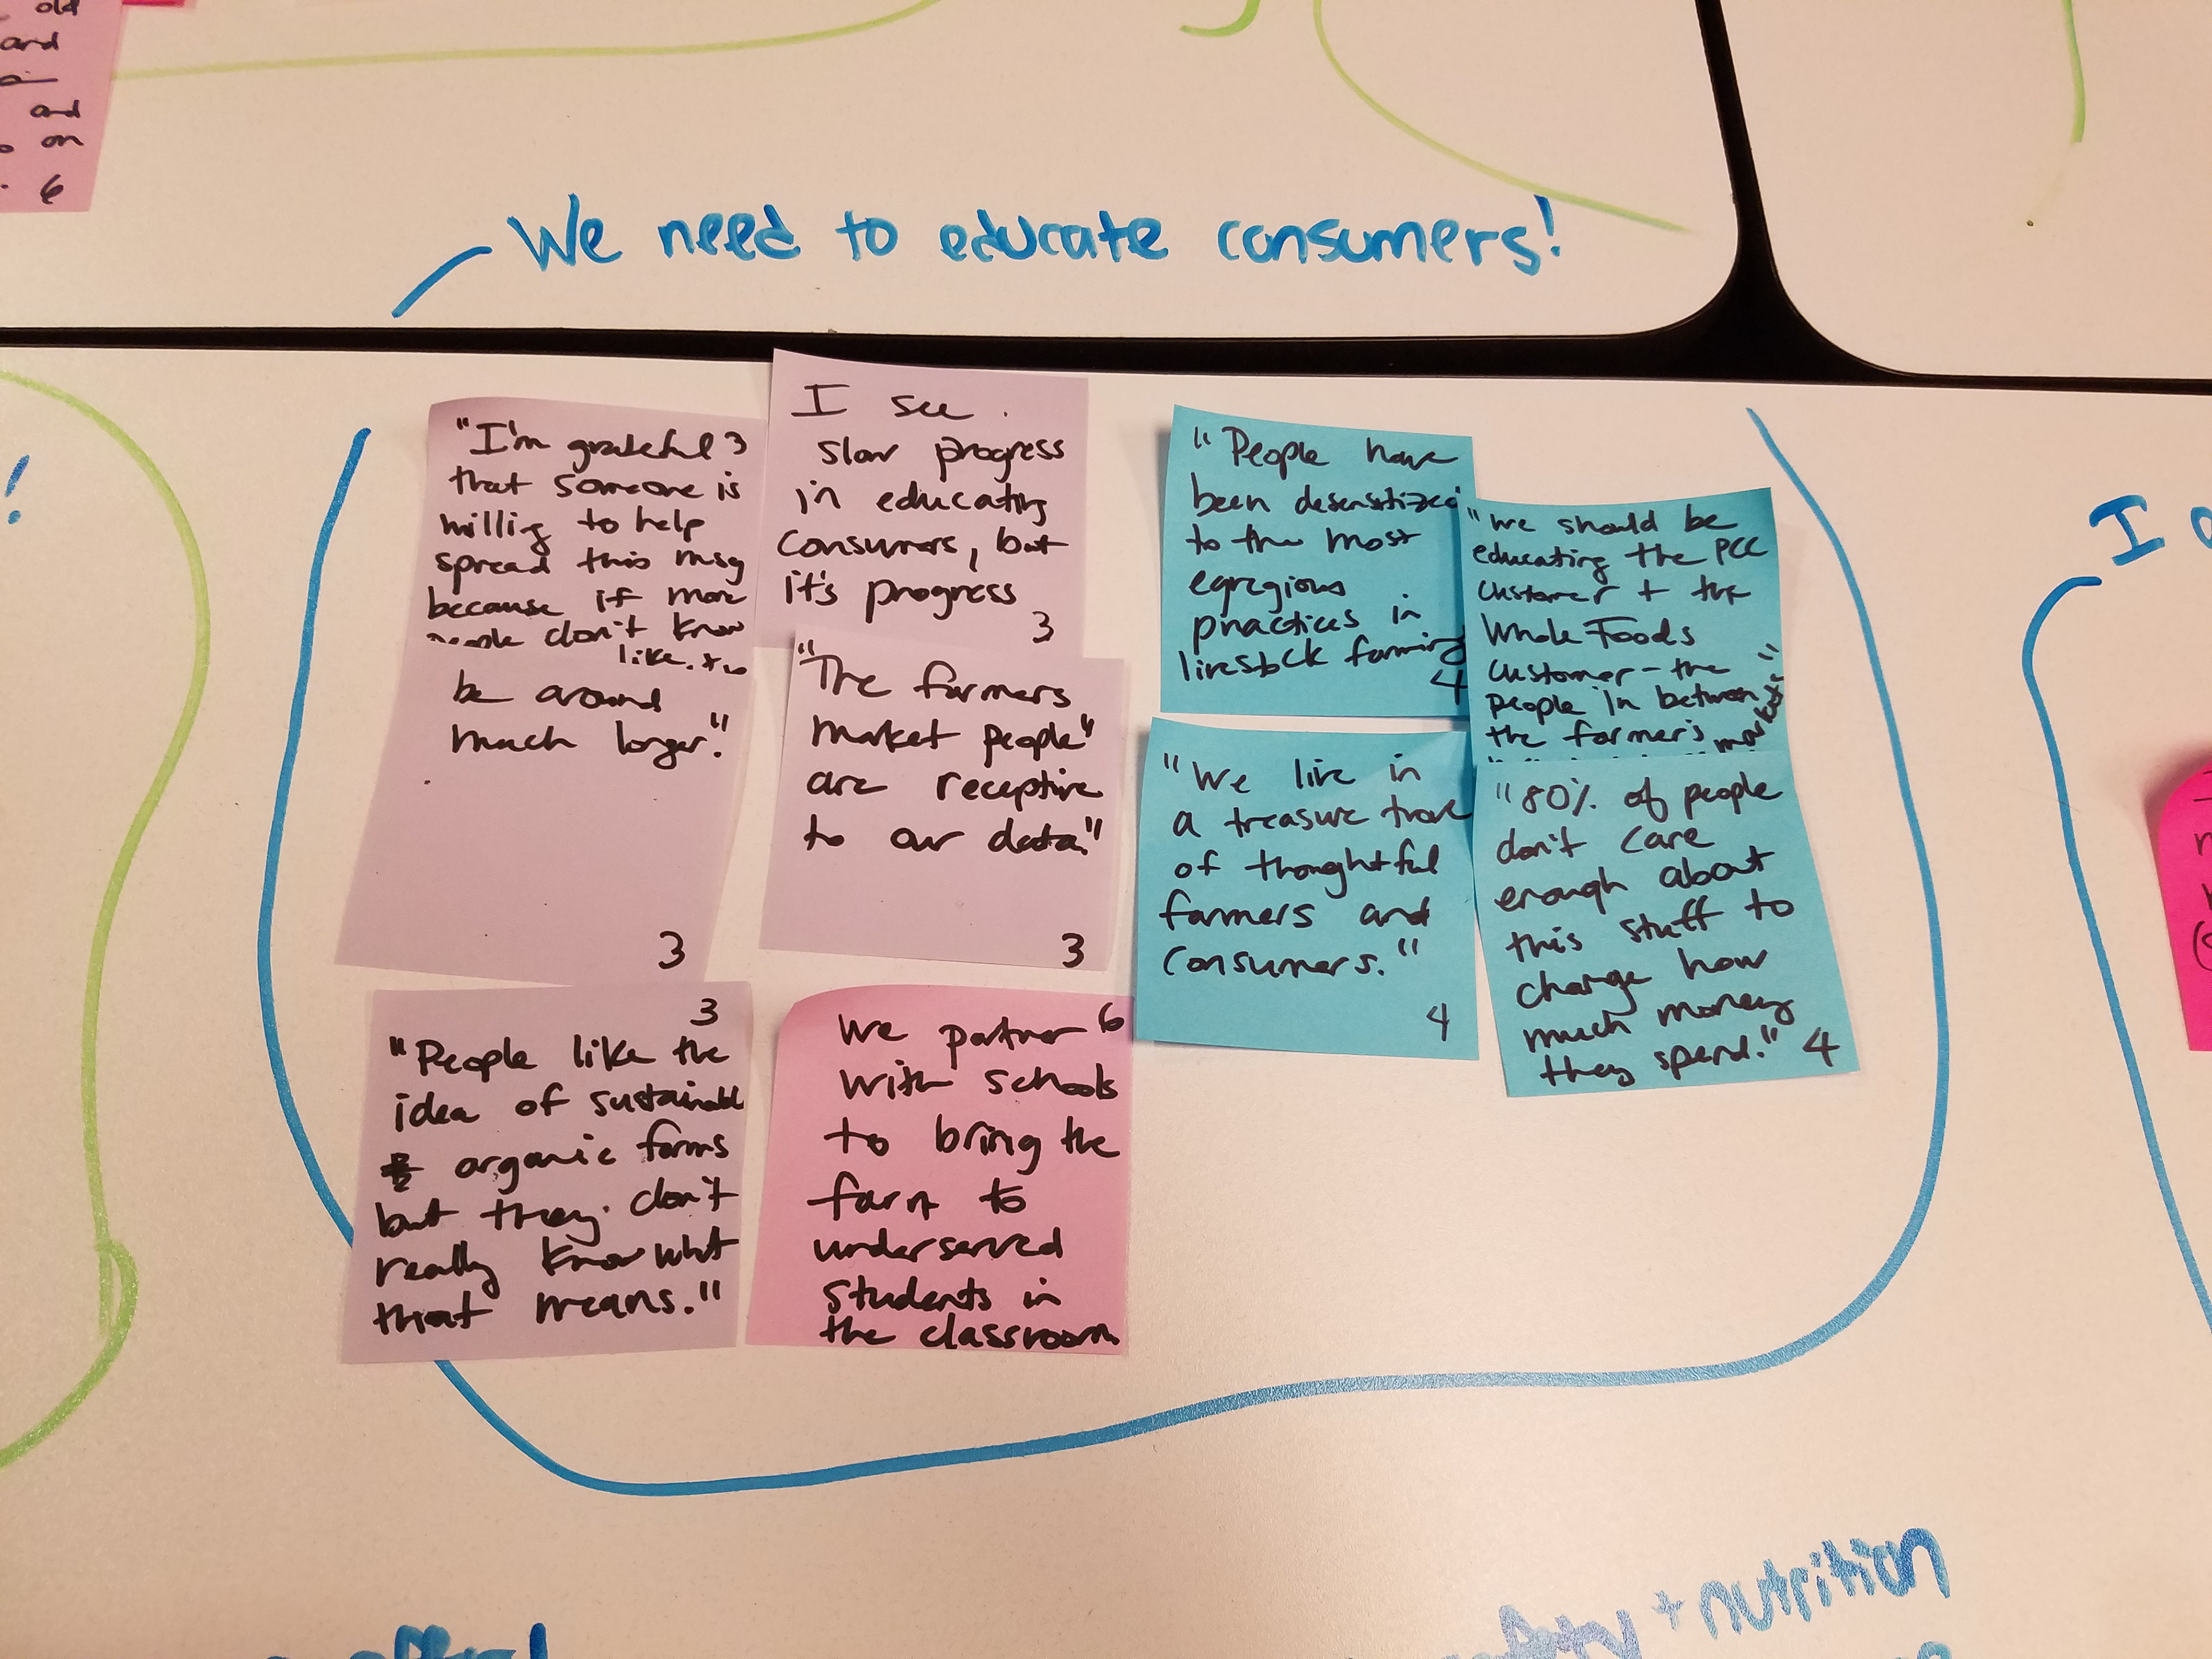 old
and
and
on
6
We need to educate consumers!
!
"I'm grateful 3
that someone is
willing to help
spread this msg
because if more
people don't know
like
be around
much longer."
3
I see
slow progress
in educating
consumers, but
it's progress
3
"The farmers
market people"
are receptive
to our data."
3
"People have
been desensitized
to the most
egregious
practices in
livestock farming
4
"We should be
educating the PCC
customer + the
Whole Foods
customer - the
people in between
the farmer's market"
"We live in
a treasure trove
of thoughtful
farmers and
consumers."
4
"80% of people
don't care
enough about
this stuff to
change how
much money
they spend." 4
3
"People like the
idea of sustainable
organic farms
but they don't
really know what
that means."
We partner 6
with schools
to bring the
farm to
underserved
students in
the classroom
I
+ nutrition